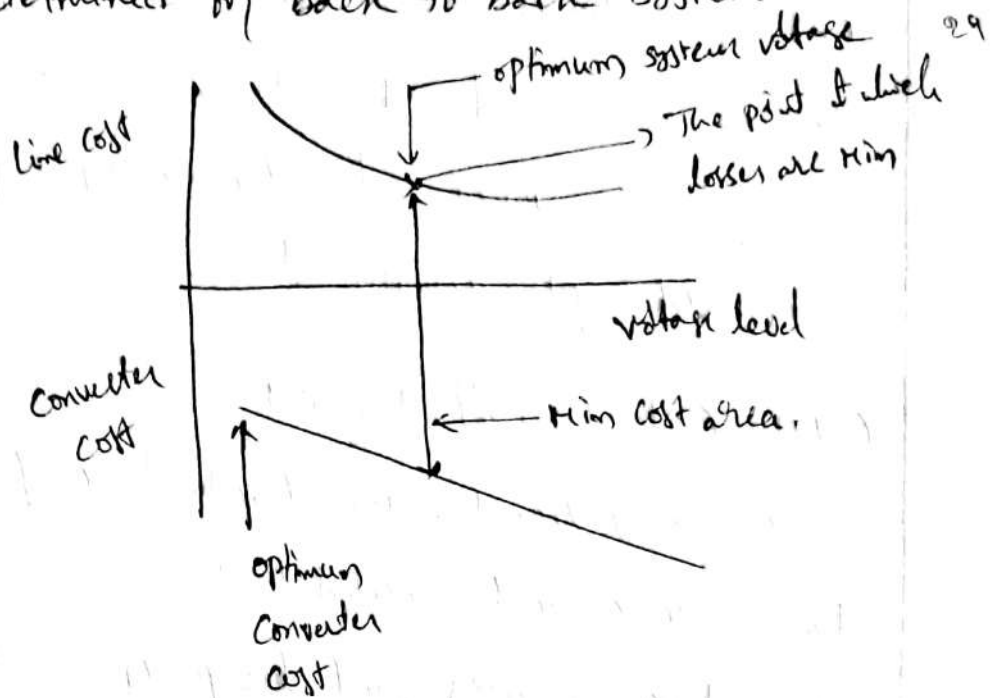 by back to back system
29
optimum system voltage
The point at which
losses are Min
Line cost
voltage level
Converter
cost
Min cost area.
optimum
Converter
cost